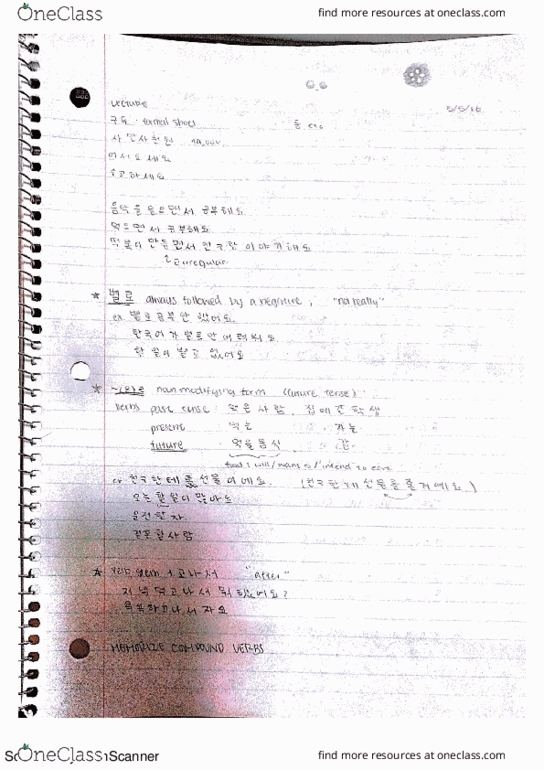 OneClass find more resources at oneclass.com
LECTURE 5/5/16
구두 : formal shoes
어서오세요
음악을 들으면서 공부해요
먹으면서 공부해요
떡볶이 만들면서 친구랑 이야기해요
irregular
★ 별로 always followed by a negative, "not really"
ex. 별로 공부 안 했어요
한국어가 별로 안 어려워요
할 일이 별로 없어요
★ ~(으)ㄹ noun modifying form (future tense)
verbs past tense : 먹은 사람, 집에 간 학생
present 먹는 가는
future 먹을 음식 갈
food I will/want to/intend to eat
ex 친구한테 줄 선물이에요. (친구한테 선물을 줄 거예요)
오늘 할 일이 많아요
운전할 자
결혼할 사람
★ verb stem + 고 나서 "after"
저녁 먹고 나서 뭐 했어요?
목욕하고 나서 자요
MEMORIZE COMPOUND VERBS
OneClass Scanner find more resources at oneclass.com